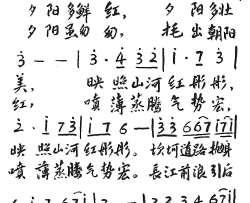 夕阳多鲜红， 夕阳多壮
夕阳虽匆匆， 托出朝阳
3̇ - - | 3̇ · 4̇ 3̇ 2̇ | 1̇ · 7 3̇ |
美， 映照山河红彤彤，
红， 喷薄蒸腾气势宏。
2̇ · 1̇ 7 3̇ | 1̇ 7 6 - | 3̇ 3̇ 6 6 7 1̇ 7 1̇ |
映照山河红彤彤。坎坷道路抛身
喷薄蒸腾气势宏。长江前浪引后